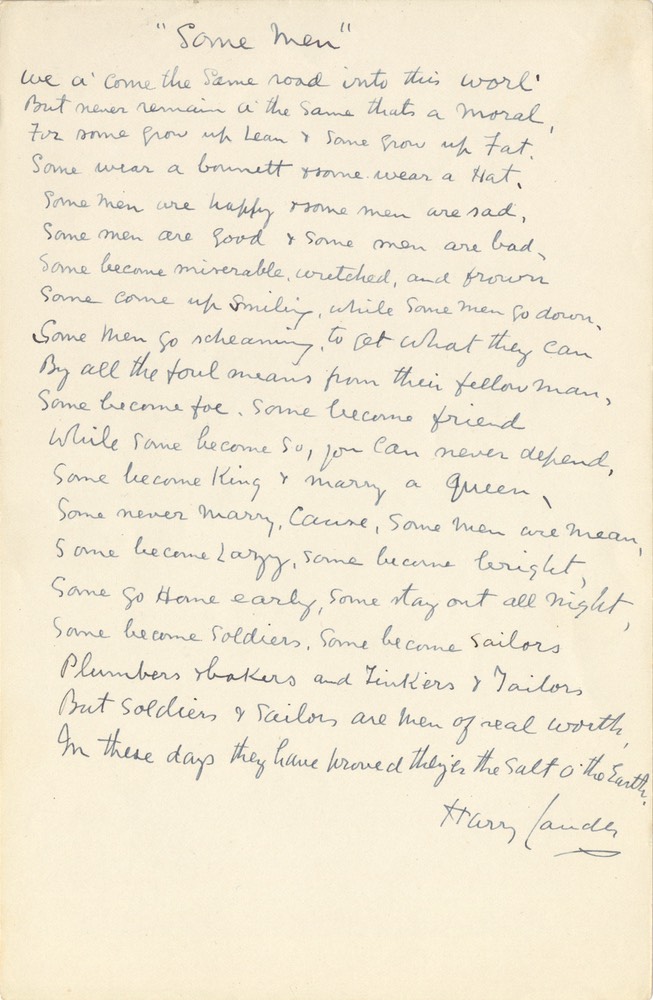 "Some Men"
We a' come the Same road into this worl'
But never remain a' the Same thats a moral,
For some grow up Lean & Some grow up Fat.
Some wear a bonnett & some wear a Hat.
Some Men are happy & some men are sad,
Some men are good & some men are bad,
Some become miserable, wretched, and frown
Some come up Smiling, while Some Men go down,
Some Men go scheaming, to get what they can
By all the foul means from their fellow man,
Some become foe. Some become friend
While Some become So, you can never depend,
Some become King & marry a Queen,
Some never Marry, Cause, Some Men are mean,
Some become Lazy, some become bright,
Some go Home early, Some stay out all night,
Some become Soldiers, Some become Sailors
Plumbers & bakers and Tinkers & Tailors
But Soldiers & Sailors are Men of real worth,
In these days they have proved the Salt o' the Earth.
Harry Lauder